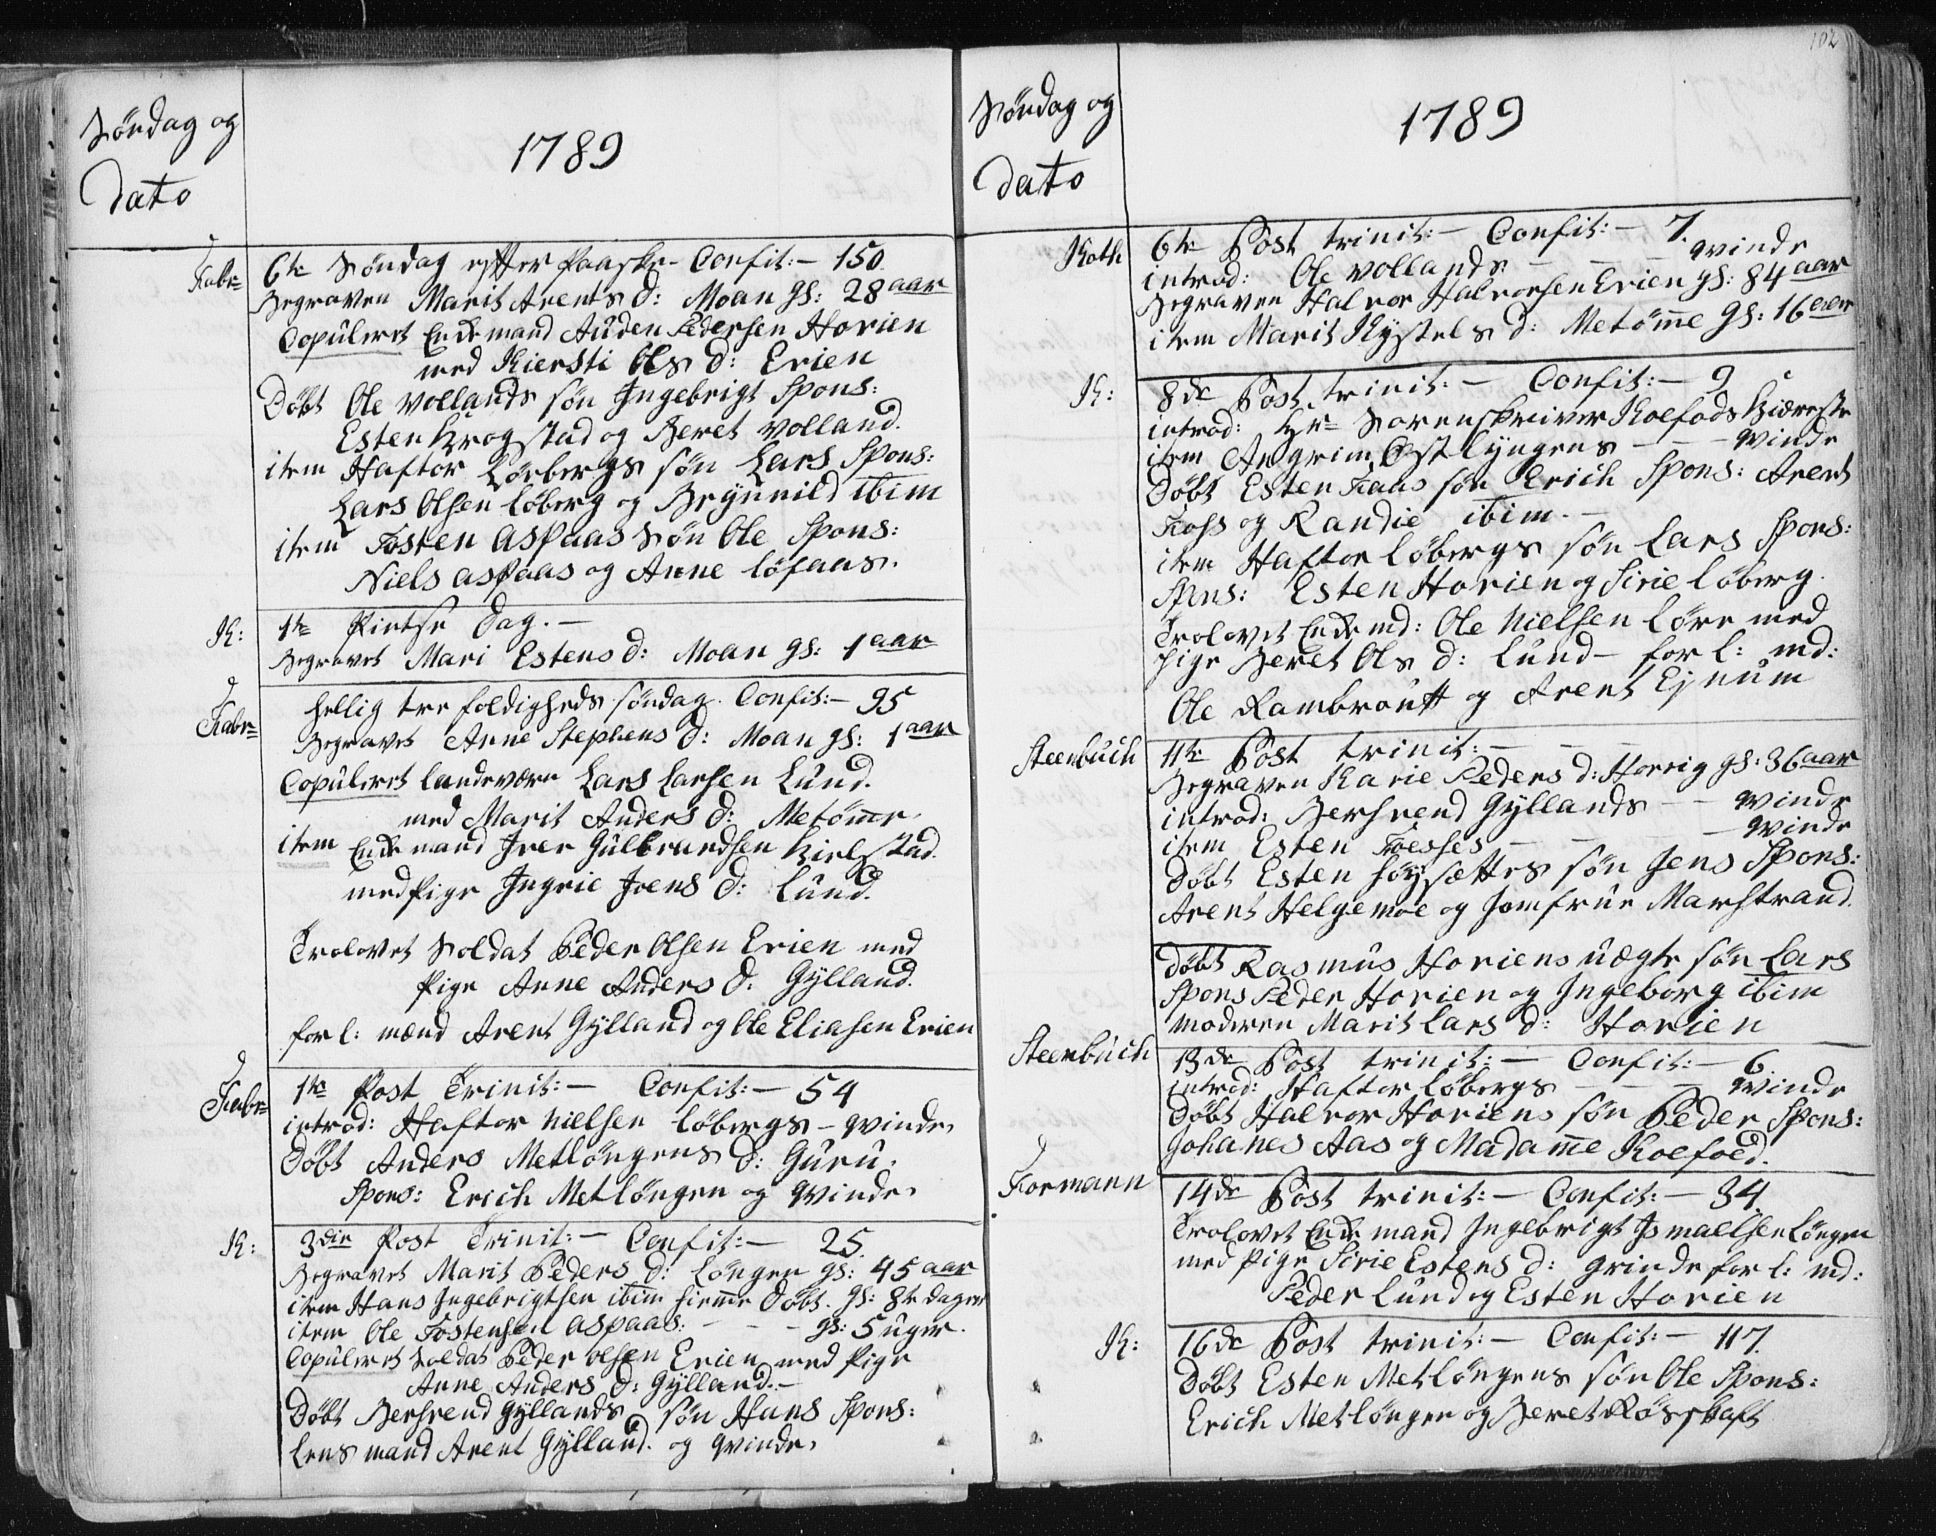 Søndag og
Dato
1789
Fabr=
6te Søndag efter Paaske - Confit: - 150
Begraven Marit Arents d: Moan gl: 28 aar
Copuleret Enkemand Auden Pedersen Horien
med Kiersti Ols d: Erien
Døbt Ole Vollands søn Ingebrigt Spons:
Esten Krogstad og Beret Volland.
item Haftor Løbergs søn Lars Spons:
Lars Olsen Løberg og Brynnild ibim
item Tosten Aspaas søn Ole Spons:
Niels Aspaas og Anne Løfaas.
K:
1te Pintse Dag. -
Begravet Mari Estens d: Moan gl: 1 aar
Fabr=
hellig tre foldigheds søndag. Confit: - 95
Begravet Anne Stephens d: Moan gl: 1 aar
Copuleret Landeværn Lars Larsen Lund.
med Marit Anders d: Metømme.
item Enkemand Iver Gulbrandsen Kielstad
med Pige Ingrie Joens d: Lund.
Trolovet Soldat Peder Olsen Erien med
Pige Anne Anders d: Gylland.
forl: mænd Arent Gylland og Ole Eliasen Erien
Fabr=
1te Post Trinit: - Confit: - 54
introd: Haftor Nielsen Løbergs - qvinde.
Døbt Anders Metløngens d: Guru.
Spons: Erich Metløngen og qvinde.
K:
3die Post Trinit: - Confit: - 25
Begravet Marit Peders d: Løngen gl: 45 aar
item Hans Ingebrigtsen ibim hiemme Døbt. gl: 8te dager
item Ole Tostensen Aspaas: - - - gl: 5 uger.
Copuleret Soldat Peder Olsen Erien med Pige
Anne Anders d: Gylland. -
Døbt Berhrend Gyllands søn Hans Spons:
Lensmand Arent Gylland. og qvinde.
102
Søndag og
Dato
1789
Koth
6te Post trinit: - Confit: - 7.
introd: Ole Vollands - - - qvinde
Begraven Halvor Halvorsen Erien gl: 84 aar
item Marit Kystels d: Metømme gl: 16 aar
K:
8de Post trinit: - Confit: - 9
introd: Hr= Sorenskriver Koefods Kiæreste
item Angrim Østlyngens - - - qvinde
Døbt Esten Kaas søn Erich Spons: Arent
Foss og Randie ibim. -
item Haftor Løbergs søn Lars Spons:
Spons: Esten Horien og Sirie Løberg.
Trolovet Enkemd: Ole Nielsen Løre med
Pige Beret Ols d: Lund - forl: md:
Ole Rambrautt og Arent Ejnum
Steenbuch
11te Post trinit: - - -
Begraven Karie Peders d: Horrig gl: 36 aar
introd: Berhrend Gyllands - - qvinde
item Esten Foesses - - - qvinde
Døbt Esten Høysættes søn Jens Spons:
Arent Helgemoe og Jomfrue Marstrand.
Døbt Rasmus Horiens uægte søn Lars
Spons Peder Horien og Ingeborg ibim
moderen Marit Lars d: Horien
Steenbuch
13de Post trinit: - Confit: - 6
introd: Haftor Løbergs - - - qvinde
Døbt Halvor Horiens søn Peder Spons:
Johanes Aas og Madamme Koefoed.
Formann
14de Post trinit: - Confit: - 34
Trolovet Enkemand Ingebrigt Ismaelsen Løngen
med Pige Sirie Estens d: grinde forl: md:
Peder Lund og Esten Horien
K:
16de Post trinit: - Confit: - 117.
Døbt Esten Metløngens søn Ole Spons:
Erich Metløngen og Beret Røsskaft